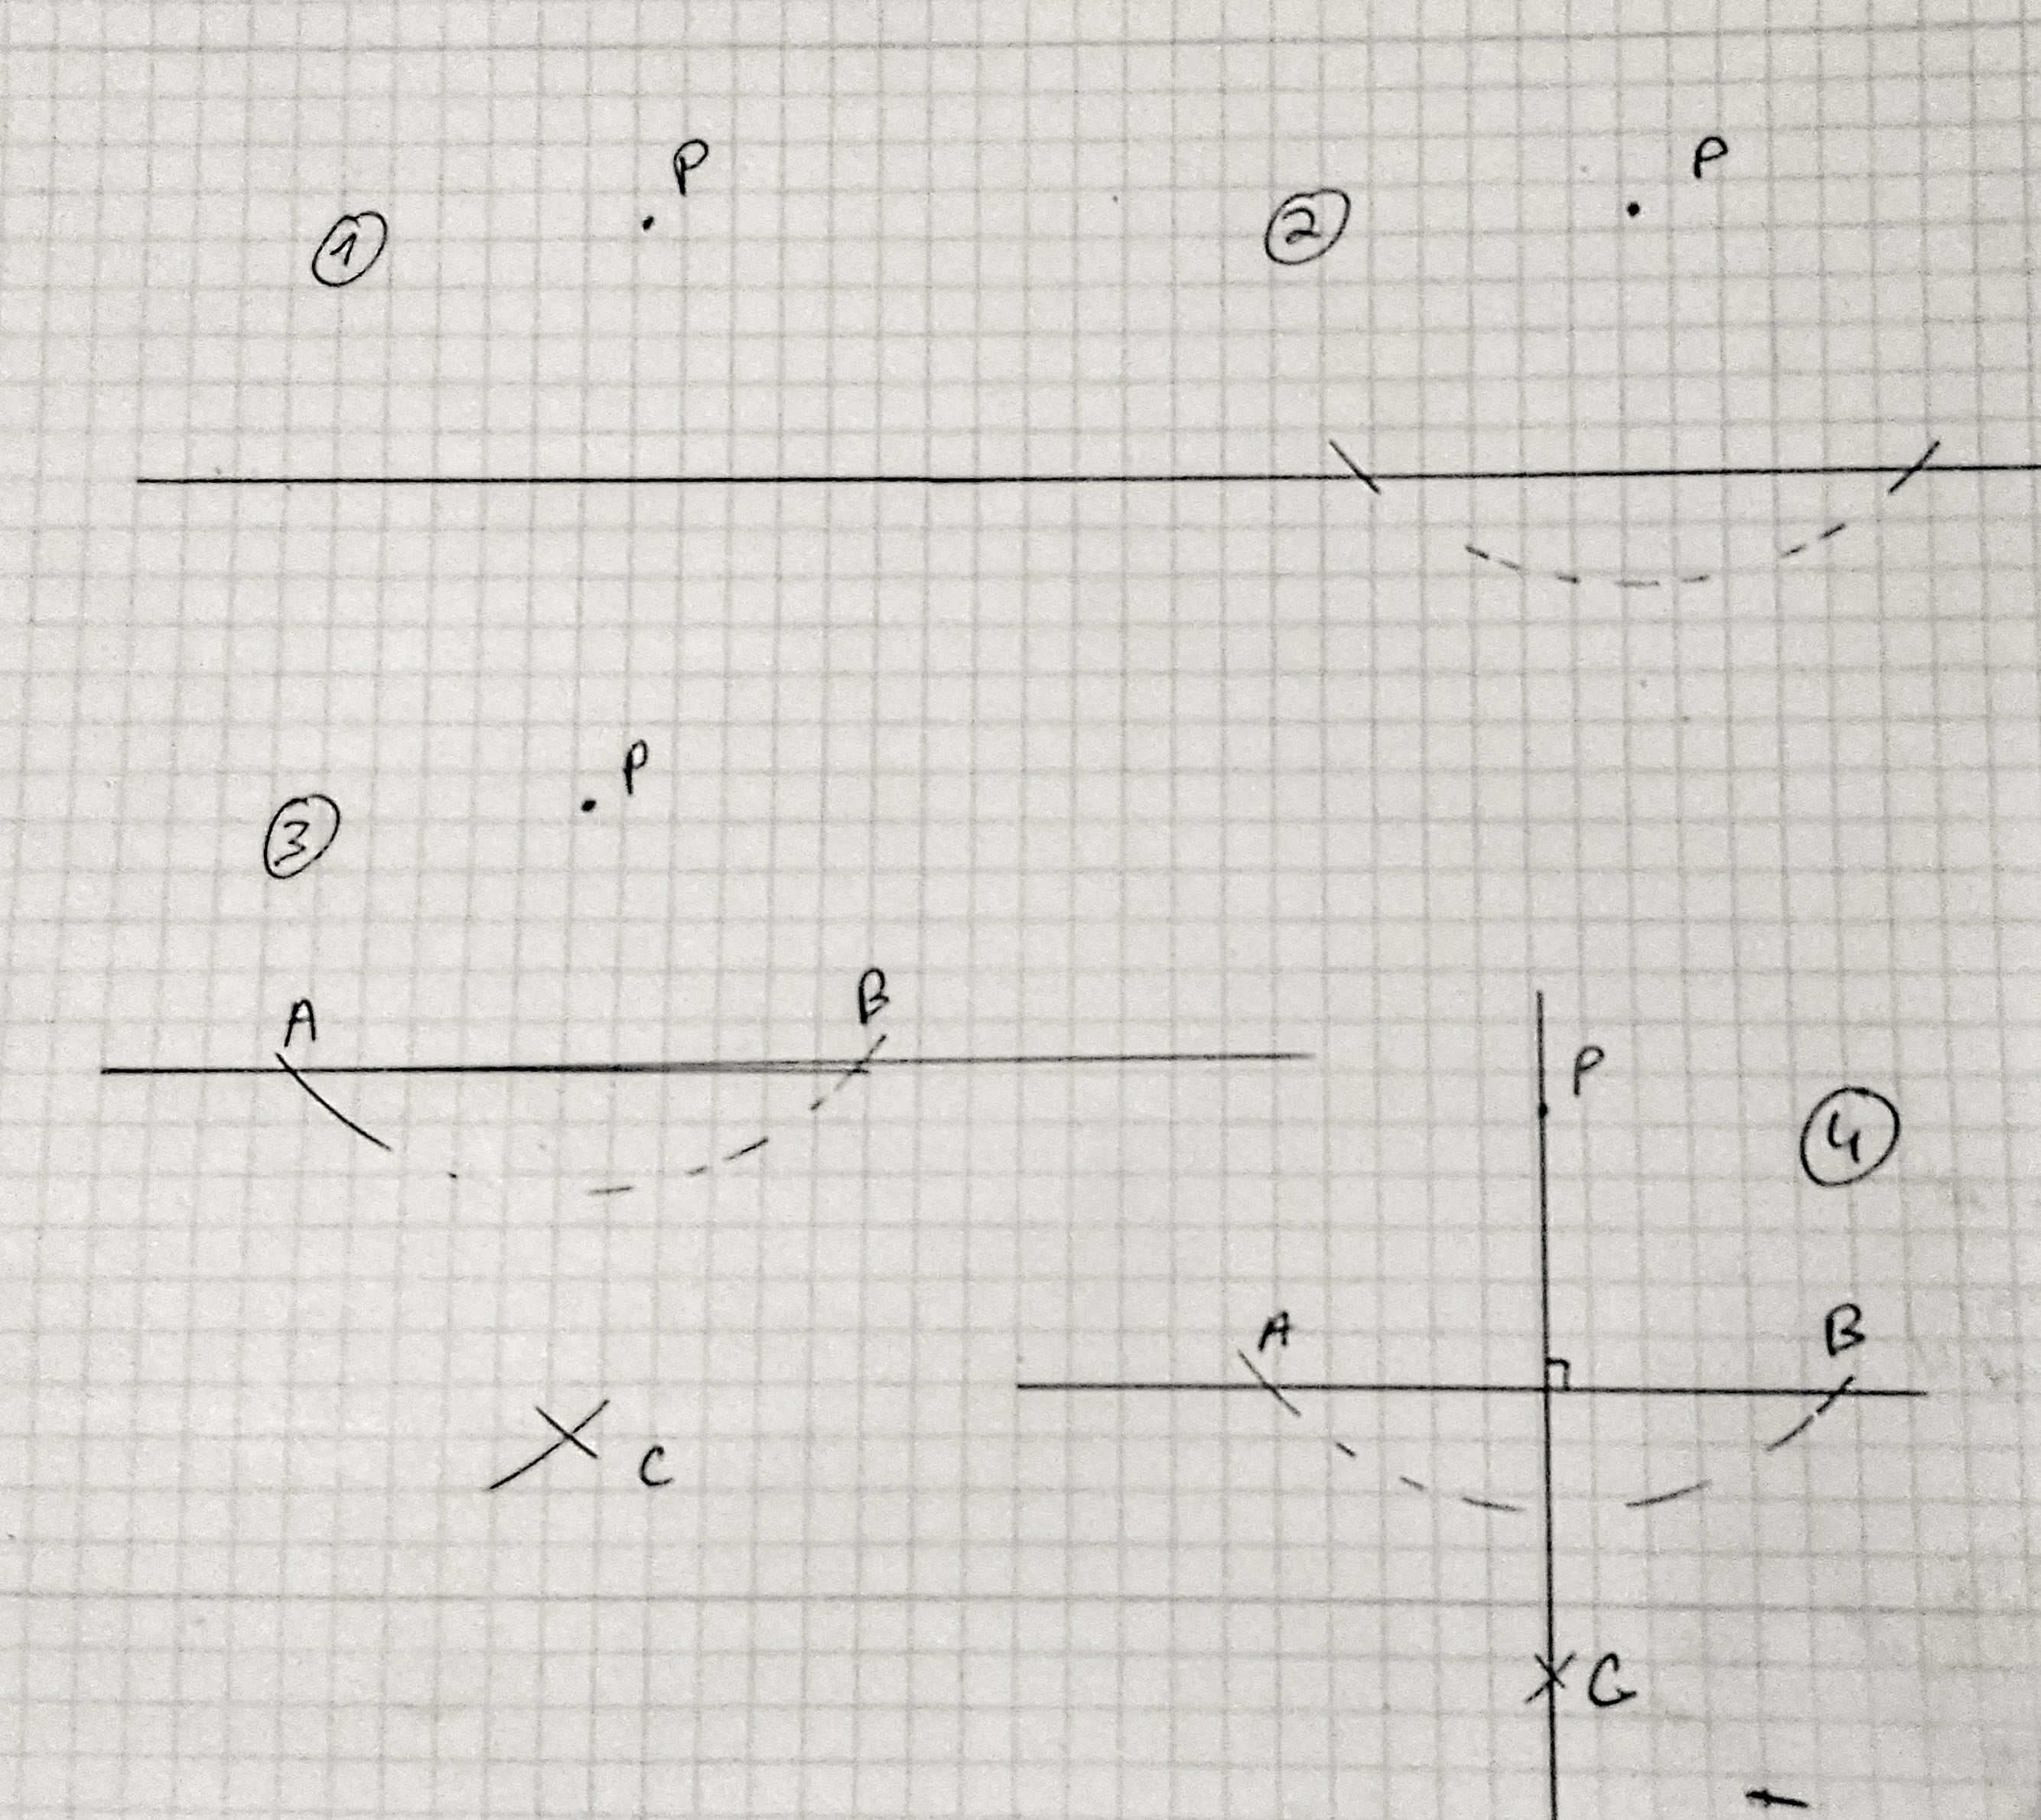 P
①
P
②
P
③
A
B
C
P
④
A
B
C